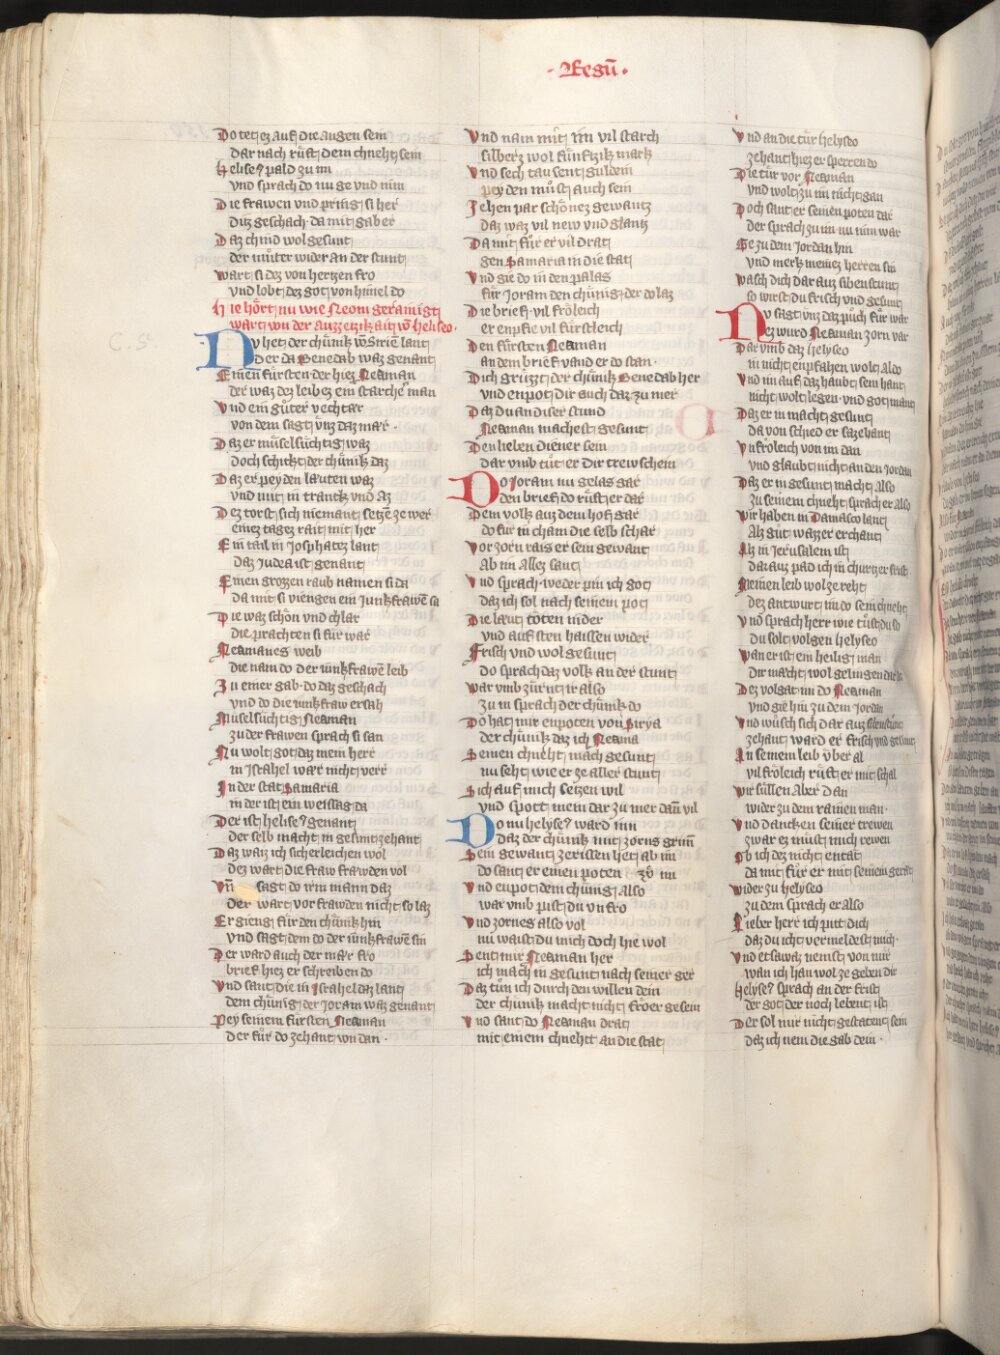 · Regū ·
Do tet ez auf die augen sein
dar nach růft dem chneht sein
Helise9 pald zu im
vnd sprach do nu ge vnd nim
Die frawen vnd pring si her
ditz geschach da mit gab er
Daz chind wol gesunt
der můter wider an der stunt
wart si dez von hertzen fro
vnd lobt dez got von himel do
Hie hört nu wie Neom geraínigt
wart von der auzzetzikait võ heliseo·
NV het der chünik võ Sirie lant
Der da Benedab waz genant
Einen fürsten der hiez Neaman
der waz dez leibez ein starcher man
Vnd ein gůter vechtar
von dem sagt vnz daz mar·
Daz er müselsüchtig waz
doch schickt der chünik daz
Daz er pey den läuten waz
vnd mit in tranck vnd az
Dez torst sich niemant setzē ze wer
einez tagez rait mit her
Ein tail in Josphatez lant
daz Judea ist genant
Einen grozzen raub namen si da
da mit si viengen ein junkfrawē sa
Die waz schön vnd chlar
die prachten si für war
Neamanes weib
die nam do der iunkfrawē leib
Zu einer gab· do daz geschach
vnd do die iunkfraw ersah
Müselsüchtig Neaman
zu der frawen sprach si san
Nu wolt got daz mein herr
in Israhel wär nicht verr
In der stat Samaria
in der ist ein weissag da
Der ist helise9 genant
der selb macht in gesunt zehant
Daz waiz ich sicherleichen wol
dez wart die fraw frawden vol
Vñ sagt do irm mann daz
der wart vor frawden nicht so laz
Er gieng für den chünik hin
vnd sagt dem do der iunkfrawē sin
Der ward auch der mär fro
brief hiez er schreiben do
Vnd sant die in Israhel daz lant
dem chünig der Joram waz genant
Pey seinem fürsten Neaman
der für do zehant von dan·
Vnd nam mit im vil starch
silberz wol fünftzik mark
Vnd sech tausent guldein
pey den můst auch sein
Zehen par schönez gewantz
daz waz vil new vnd glantz
Da mit für er vil drat
gen Samaria in die stat
Vnd gie do in den palas
für Joram den chünig der do laz
Die brief· vil fröleich
er enpfie vil fürstleich
Den fürsten Neaman
an dem brief vand er do stan·
Dich grüzzt der chünik Benedab her
vnd enpot dir auch daz zu mer
Daz du an diser stund
Neaman machest gesunt
Den lieben diener sein
dar vmb tůt er dir trew schein
DO Joram nu gelas gar
den brief do růft er dar
Dem volk auz dem hof gar
do für in cham die selb schar
Vor zorn rais er sein gewant
Ab im allez sant
Vnd sprach· weder pin ich got
daz ich sol nach seinem pot
Die läut töten nider
vnd auf sten haissen wider
Frisch vnd wol gesunt
do sprach daz volk an der stunt
War vmb zürnt ir also
zu in sprach der chünik do
Do hat mir enpoten von Sirya
der chünik daz ich Neama
Seinen chneht mach gesunt
nu seht wie er ze aller stunt
Sich auf mich setzen wil
vnd spott mein dar zu mer dañ vil
DO nu helyse9 ward inn
daz der chünik mit zorns grim̄
Sein gewant zerissen het ab im
do sant er einen poten zů im
Vnd enpot dem chünig also
war vmb pist du vnfro
Vnd zornes also vol
nu waist du mich doch hie wol
Sent mir Neaman her
ich mach in gesunt nach seiner ger
Daz tun ich durch den willen dein
der chünik macht nicht frőer gesein
Vnd sant do Neaman drat
mit einem chneht an die stat
Vnd an die tür helyseo
zehant hiez er sperren do
Die tür vor Neaman
vnd wolt zu im nicht gan
Doch sant er seinen poten dar
der sprach zu im nu nim war
Ge zu dem Jordan hin
vnd merk meinez herren sin
Wasch dich dar auz siben stunt
so wirst du frisch vnd gesunt
NV sagt vnz daz půch für war
ez wurd Neaman zorn var
Dar vmb daz helyseo
in nicht enpfahen wolt also
Vnd im auf daz haubt sein hant
nicht wolt legen· vnd got mant
Daz er in macht gesunt
da von schied er sazehant
Vnfröleich von im dan
vnd glaubt nicht an den Jordan
Daz er in gesunt macht also
zu seinem chneht sprach er also
Wir haben in Damasco lant
Alz gůt wazzer erchant
Alz in Jerusalem ist
dar auz pad ich in churtzer frist
Meinen leib wol ze reht
dez antwurt im do sein chneht
Vnd sprach herr wie tůst du so
du solt volgen helyseo
Wan er ist ein heilig man
dir macht wol gelingen dar an
Dez volgat im do Neaman
vnd gie hin zu dem Jordan
Vnd wüsch sich dar auz siben stunt
zehant ward er frisch vnd gesunt
An seinem leib vberal
vil frőleich růft er mit schal
Wir süllen aber dan
wider zu dem rainen man·
Vnd dancken seiner trewen
zwar ez můst mich rewen
Ob ich dez nicht entät
da mit für er mit seinem gerät
Wider zu helyseo
zu dem sprach er also
Lieber herr ich pitt dich
daz du icht vermeldest mich·
Vnd etsawaz nemst von mir
wan ich han wol ze geben dir
Helyse9 sprach an der frist
der got der noch lebent ist
Der sol mir nicht gestatent sein
daz ich nem die gab dein·